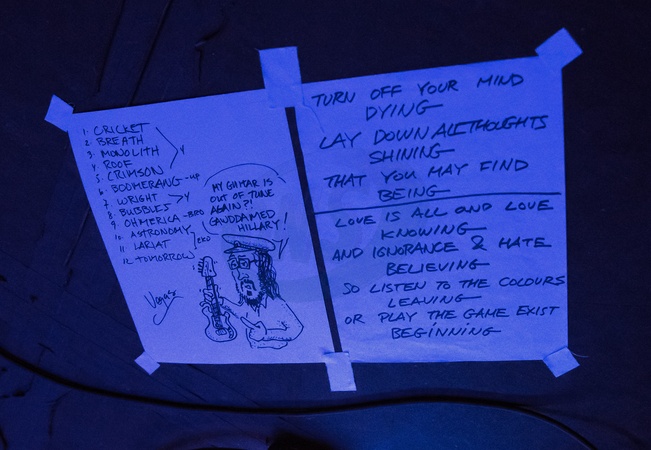 1. CRICKET
2. BREATH
3. MONOLITH
4. ROOF
5. CRIMSON
6. BOOMERANG - up
7. WRIGHT
8. BUBBLES
9. OHMERICA - BRO
10. ASTRONOMY
11. LARIAT
12. TOMORROW
MY GUITAR IS
OUT OF TUNE
AGAIN?!
GAWDDAMED
HILLARY!
TURN OFF YOUR MIND
DYING
LAY DOWN ALL THOUGHTS
SHINING
THAT YOU MAY FIND
BEING
LOVE IS ALL AND LOVE
KNOWING
AND IGNORANCE & HATE
BELIEVING
SO LISTEN TO THE COLOURS
LEAVING
OR PLAY THE GAME EXIST
BEGINNING